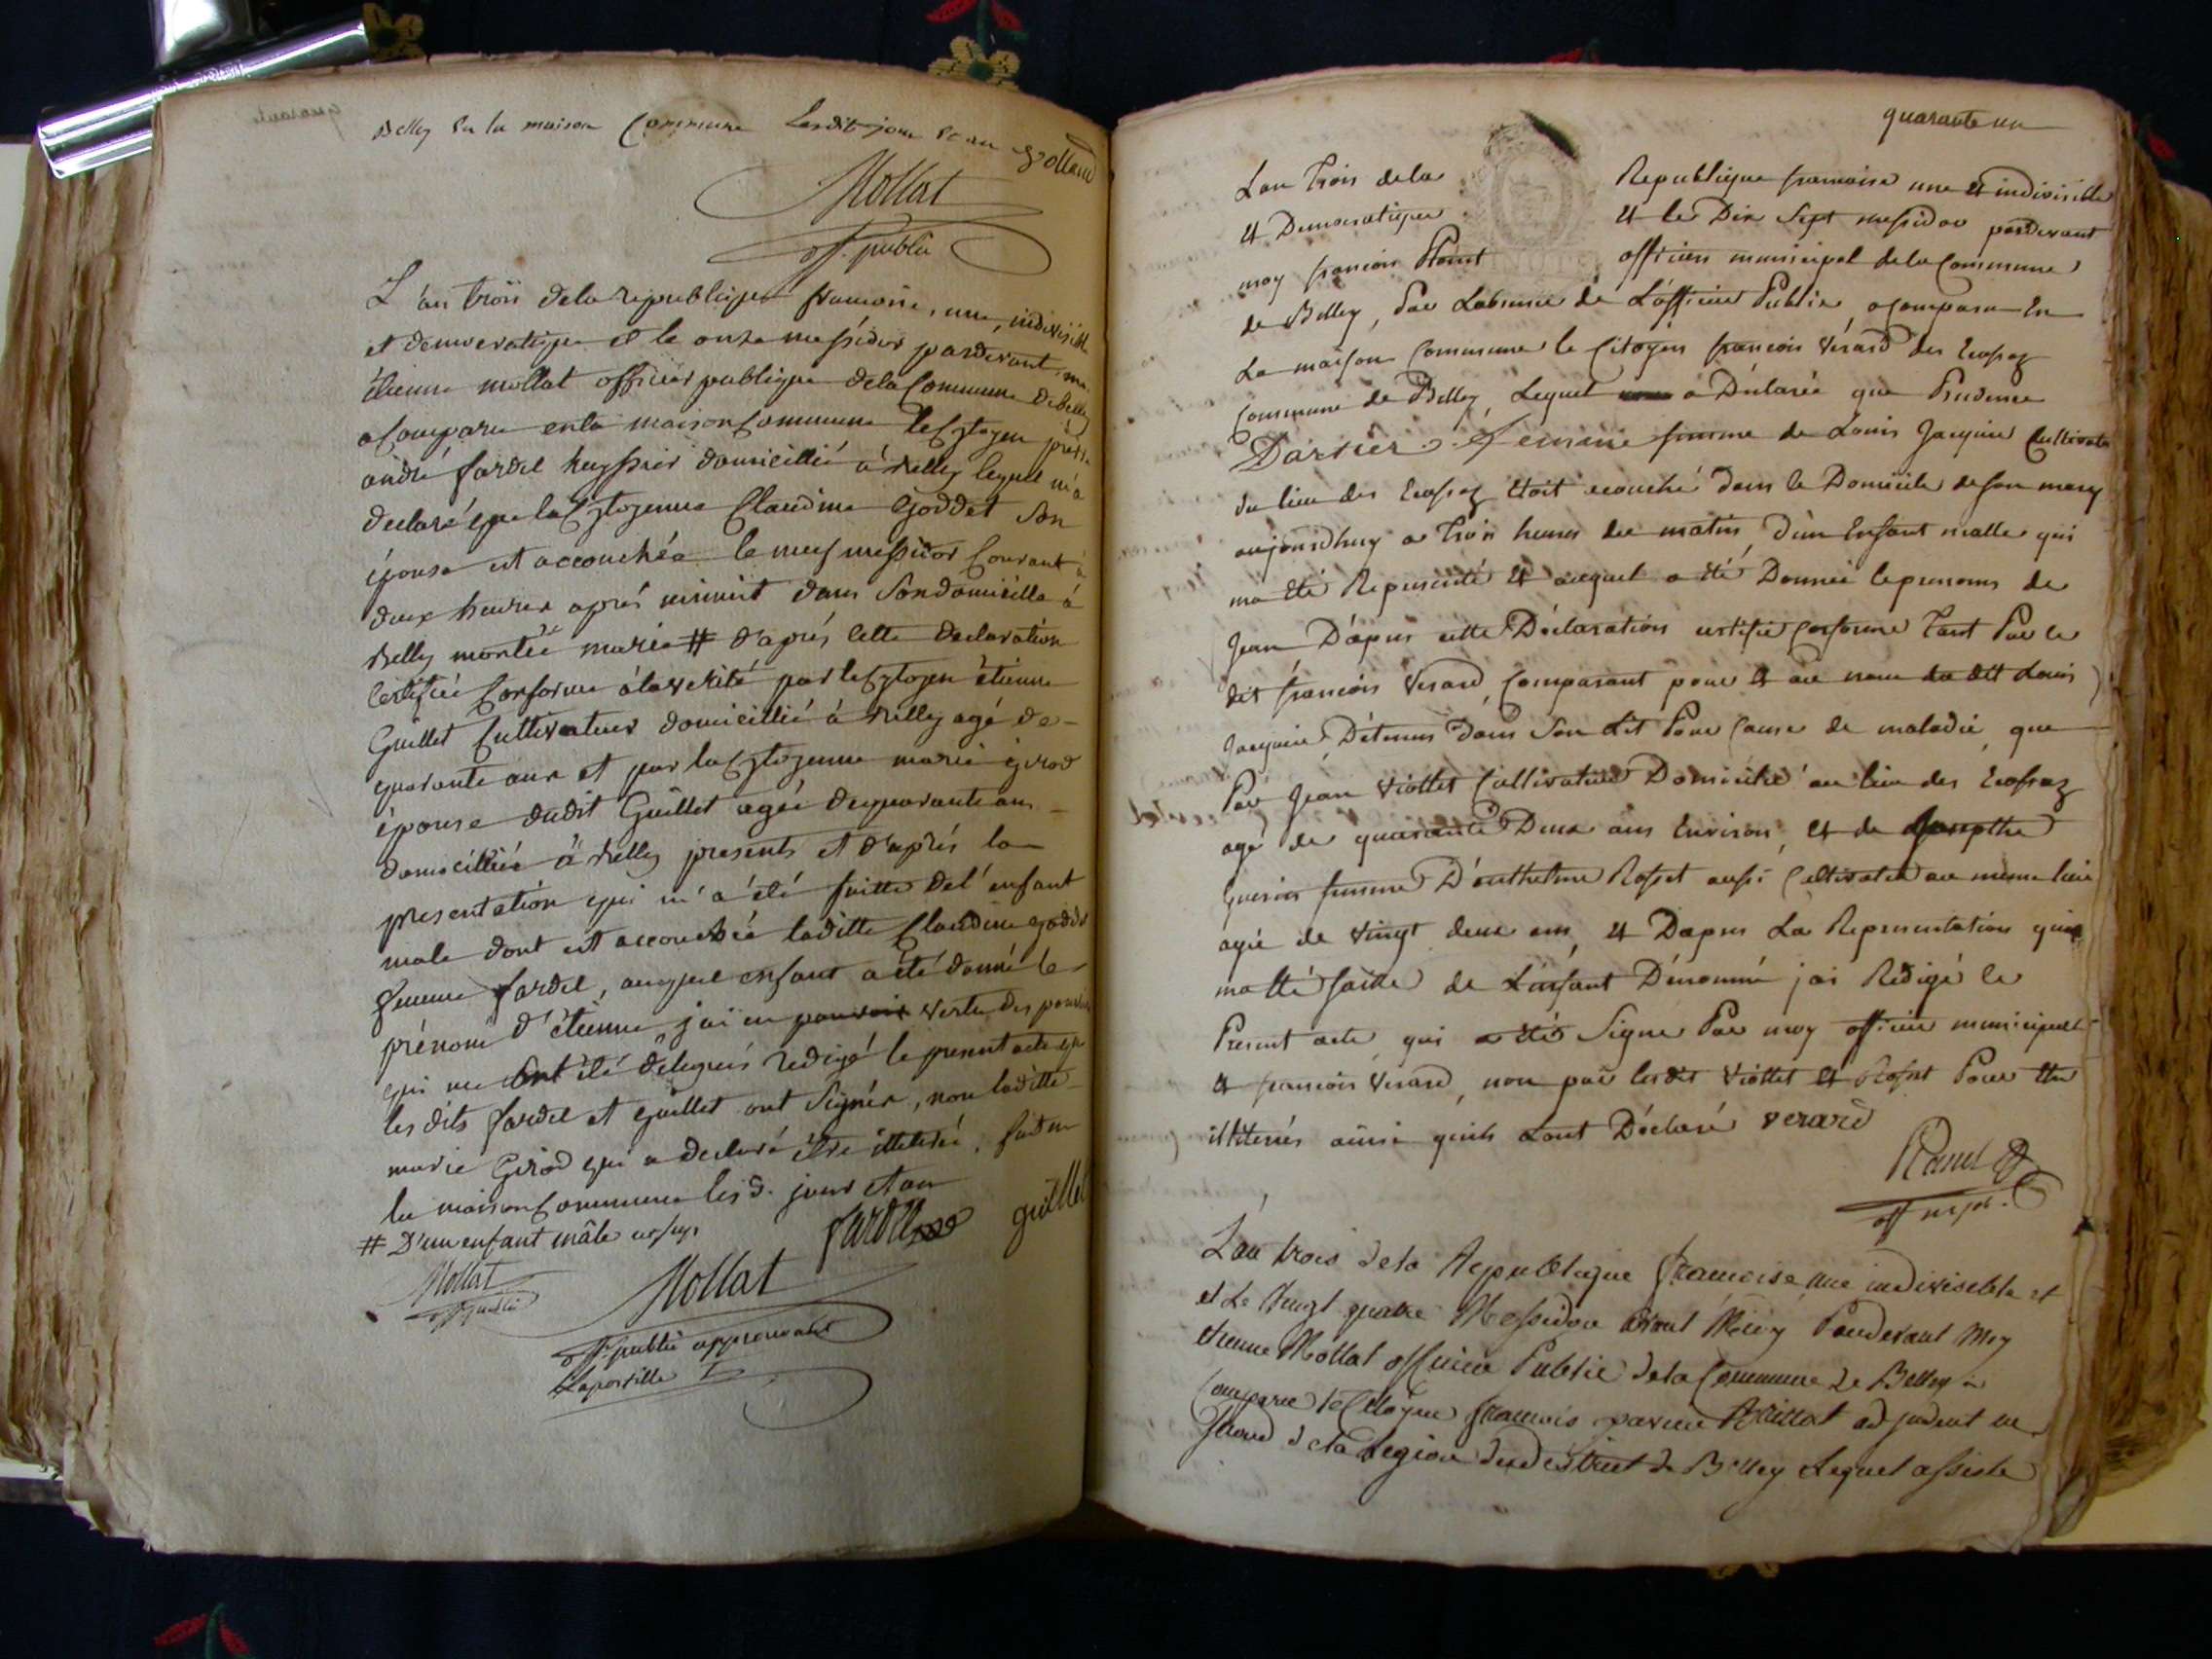 Belley en la maison Commune lesdit jour et an Volland
Mollat
off. public
L'an trois dela republique francoise, une, indivisible
et democratique et le onze messidor pardevant, moi
étienne mollat officier publique dela Commune de belley
a Comparu en la maison Commune le Cytoyen
andré fardel huyssier domicillié à belley lequel m'a
declaré que la Cytoyenne Claudine Goddet son
épouse est accouchée le neuf messidor Courant à
deux heures aprés minuit dans son domicille à
belley montée marie # d'aprés cette declaration
Certifiée Conforme à la verité par le Cytoyen étienne
Guillet Cultivateur domicillié à belley agé de
quarante ans et par la Cytoyenne marie girod
épouse dudit Guillet agée de quarante ans
domicilliée à belley presents et d'aprés la
presentation qui m'a été faitte de l'enfant
male dont est accouchée laditte Claudine goddet
femme fardel, auquel enfant a été donné le
prénom d'étienne j'ai en pouvoir vertu des pouvoirs
qui me sont été délegués redigé le present acte que
les dits fardel et guillet ont signés, non laditte
marie Girod qui a declaré étre illeterée, fait en
la maison Commune les d. jour et an
# D'un enfant mâle
fardel guillet
Mollat
off public
Mollat
off. public approuvant
quarante un
Lan Trois dela Republique francoise une et indivisible
et Democratique et le Dix Sept messidor pardevant
moy francois officier municipal dela Commune
de Belley, Par Labsence de Lofficier Public, a comparu En
La maison Commune le Citoyen francois Vérard des Ecassaz
Commune de Belley Lequel a Déclarée que Prudence
femme de Louis Jacquin Cultivateur
du lieu des Ecassaz étoit acouché dans le Domicile de son mary
aujourdhuy a Trois heures du matin D'un Enfant malle qui
ma été Représenté et auquel a été Donnée le prenoms de
Jean D'apres cette Déclaration certifié Conforme Tant Par le
dit francois Verard, Comparant pour et au nom du dit Louis
Jacquin, Détenus dans son Lit Pour Cause de maladie, que
Par Jean Viollet Cultivateur Domicilié au lieu des Ecassaz
agé de quarante Deux ans Environ, et de
Guerin femme D'anthelme Rosset aussi Cultivateur au meme lieu
agée de Vingt deux ans, et Dapres La Representation qui
ma été faitte de L'enfant Dénommé jai Redigé le
Present acte qui a été Signé Par moy officier municipal
et francois Verard, non par lesdit Viollet et Rosset Pour être
illiterrés ainsi quils Lont Déclaré verard
off mpal.
L'an trois dela Republique francoise une indivisible et
et Le Vingt quatre Messidor Pardevant Moy
etienne Mollat officier Public dela Commune de Belley a
Comparu le Citoyen francois adjudent en
second dela Legion du district de Belley Lequel assisté